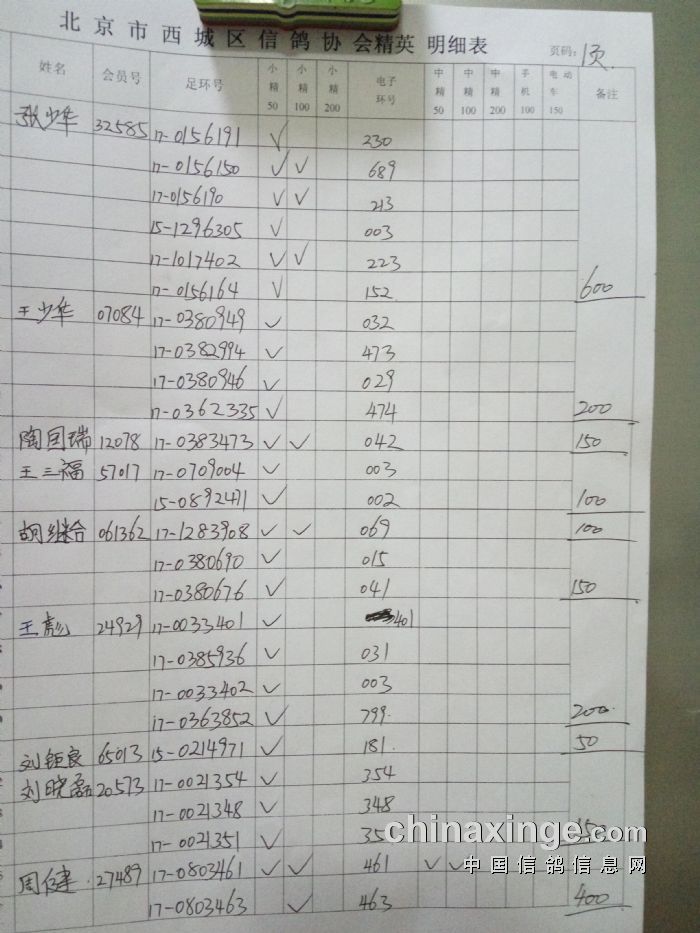 北京市西城区信鸽协会精英明细表 页码: 1页
姓名 会员号 足环号 小精50 小精100 小精200 电子环号 中精50 中精100 中精200 手机100 电动车150 备注
张少华 32585 17-0156191 √ 230
17-0156150 √ √ 689
17-0156190 √ √ 213
15-1296305 √ 003
17-1017402 √ √ 223
17-0156164 √ 152 600
王少华 07084 17-0380949 √ 032
17-0382994 √ 473
17-0380946 √ 029
17-0362335 √ 474 200
陶国瑞 12078 17-0383473 √ √ 042 150
王三福 57017 17-0709004 √ 003
15-0892471 √ 002 100
胡继合 061362 17-1283908 √ √ 069 100
17-0380690 √ 015
17-0380676 √ 041 150
王彪 24929 17-0033401 √ 401
17-0385936 √ 031
17-0033402 √ 003
17-0363852 √ 799. 200
刘钜良 65013 15-0214971 √ 181. 50
刘晓磊 20573 17-0021354 √ 354
17-0021348 √ 348
17-0021351 √ 35 150
chinaxinge.com
周健 27489 17-0803461 √ √ 461 √ √
中国信鸽信息网
17-0803463 √ 463 400